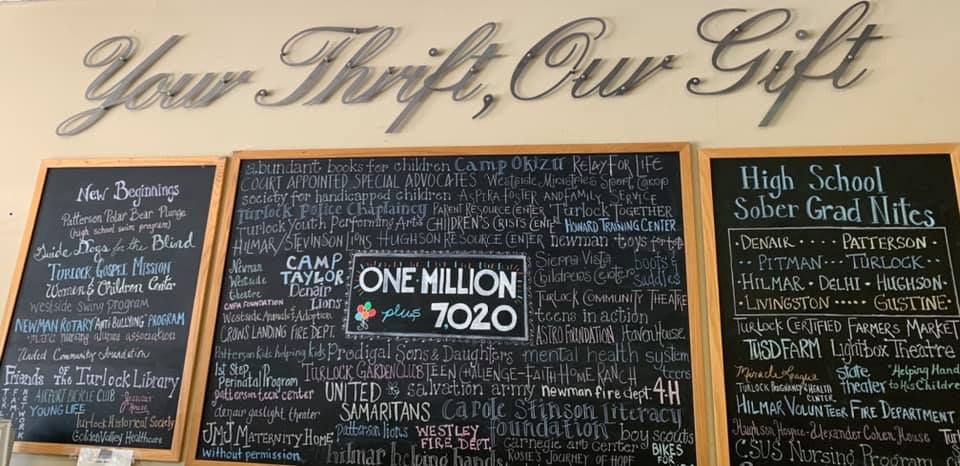 Your Thrift, Our Gift
New Beginnings
Patterson Polar Bear Plunge
(high school swim program)
Guide Dogs for the Blind
Turlock Gospel Mission
Women & Children Center
Westside Swing Program
Newman Rotary Anti Bullying Program
United Community Foundation
Friends of the Turlock Library
Airport Bicycle Club
Young Life
Turlock Historical Society
Golden Valley Healthcare
abundant books for children Camp Okizu Relay For Life
Court Appointed Special Advocates Westside Ministries Sport Camp
society for handicapped children Aspira Foster and Family Service
Turlock Police Chaplaincy Parent Resource Center Turlock Together
Turlock Youth Performing Arts Children's Crisis Center Howard Training Center
Hilmar/Stevinson Lions Hughson Resource Center newman toys for tots
Newman
Westside
theatre
CAMP
TAYLOR
Denair
Lions
Sierra Vista
Children's Center
boots &
saddles
CAPPA Foundation
Westside Animals 4 Adoption
Crows Landing Fire Dept.
ONE MILLION
plus 7,020
Turlock Community Theatre
teens in action
Astro Foundation Haven House
Patterson Kids helping kids Prodigal Sons & Daughters mental health system
1st Step
Perinatal Program
Turlock Garden Club Teen Challenge-Faith Home Ranch
patterson teen center
United Samaritans
salvation army newman fire dept. 4-H
denair gaslight theater
Carole Stinson Literacy
Foundation boy scouts
JMJ Maternity Home
Patterson Lions
Westley
Fire Dept.
Carnegie art center
without permission
hilmar helping hands
Rosie's Journey of Hope
Bikes
for
High School
Sober Grad Nites
·Denair ···· Patterson·
··Pitman··· Turlock··
Hilmar · Delhi · Hughson·
·Livingston ····· Gustine·
Turlock Certified Farmers Market
TUSD Farm Lightbox Theatre
Miracle League
state
theater
"Helping Hands
to His Children
Turlock Pregnancy & Health
Center
Hilmar Volunteer Fire Department
Hughson Hospice-Alexander Cohen House
CSUS Nursing Program